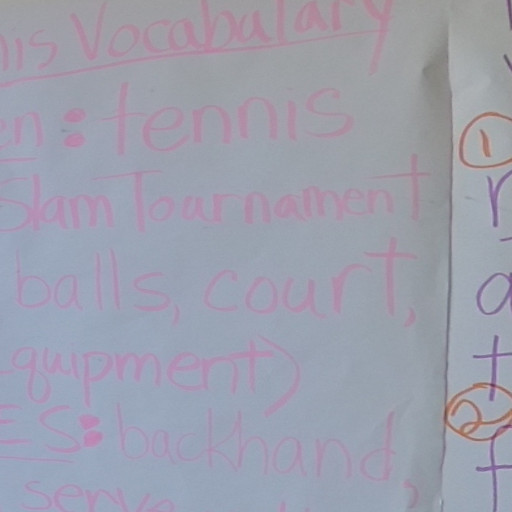 Vocabulary
: tennis
Slam Tournament
balls, court,
quipment)
ES: backhand,
serve
1
r
a
t
2
f